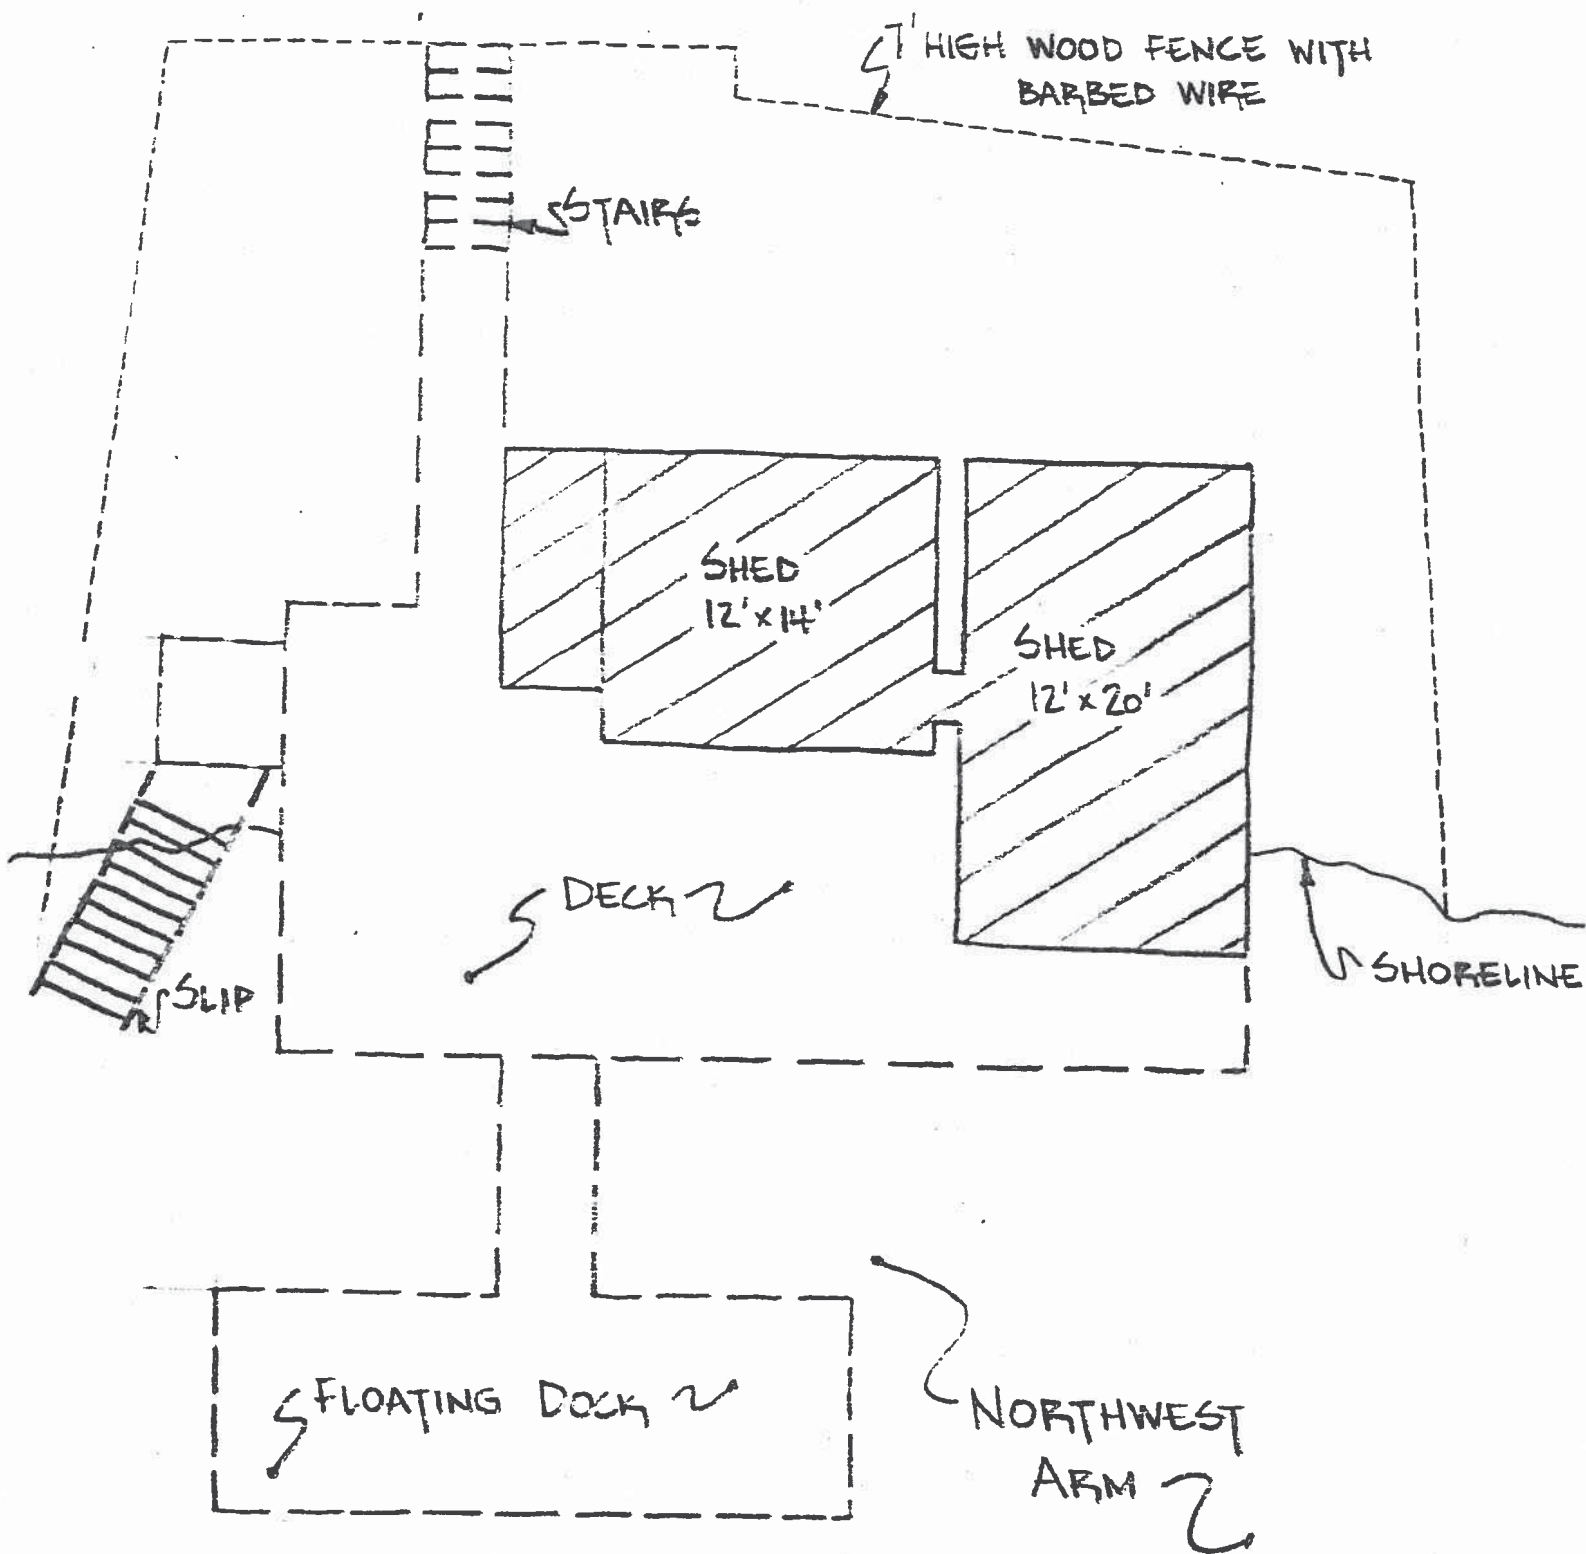 7' HIGH WOOD FENCE WITH
BARBED WIRE
STAIRS
SHED
12' x 14'
SHED
12' x 20'
DECK
SLIP
SHORELINE
FLOATING DOCK
NORTHWEST
ARM